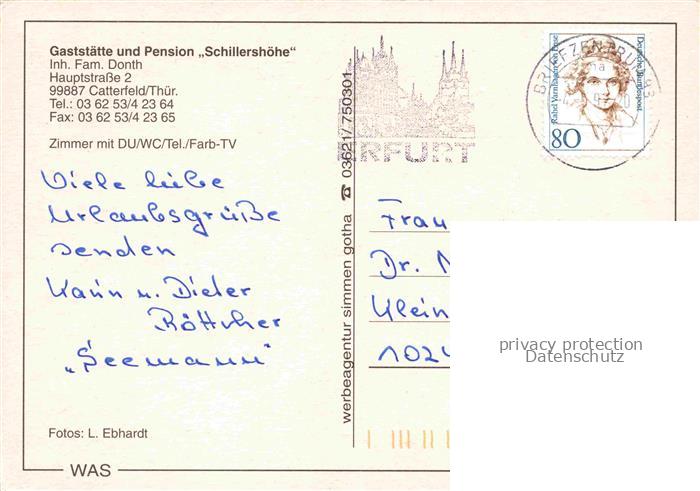 Gaststätte und Pension „Schillershöhe"
Inh. Fam. Donth
Hauptstraße 2
99887 Catterfeld/Thür.
Tel.: 03 62 53/4 23 64
Fax: 03 62 53/4 23 65
Zimmer mit DU/WC/Tel./Farb-TV
Viele liebe
Urlaubsgrüße
senden
Karin u. Dieter
Röttcher
„Seemann"
Fotos: L. Ebhardt
WAS
werbeagentur simmen gotha ☎ 03621/ 750301
ERFURT
BRIEFZENTRUM
Rahel Varnhagen von Ense
Deutsche Bundespost
80
Frau
Dr.
Klein
102
privacy protection
Datenschutz